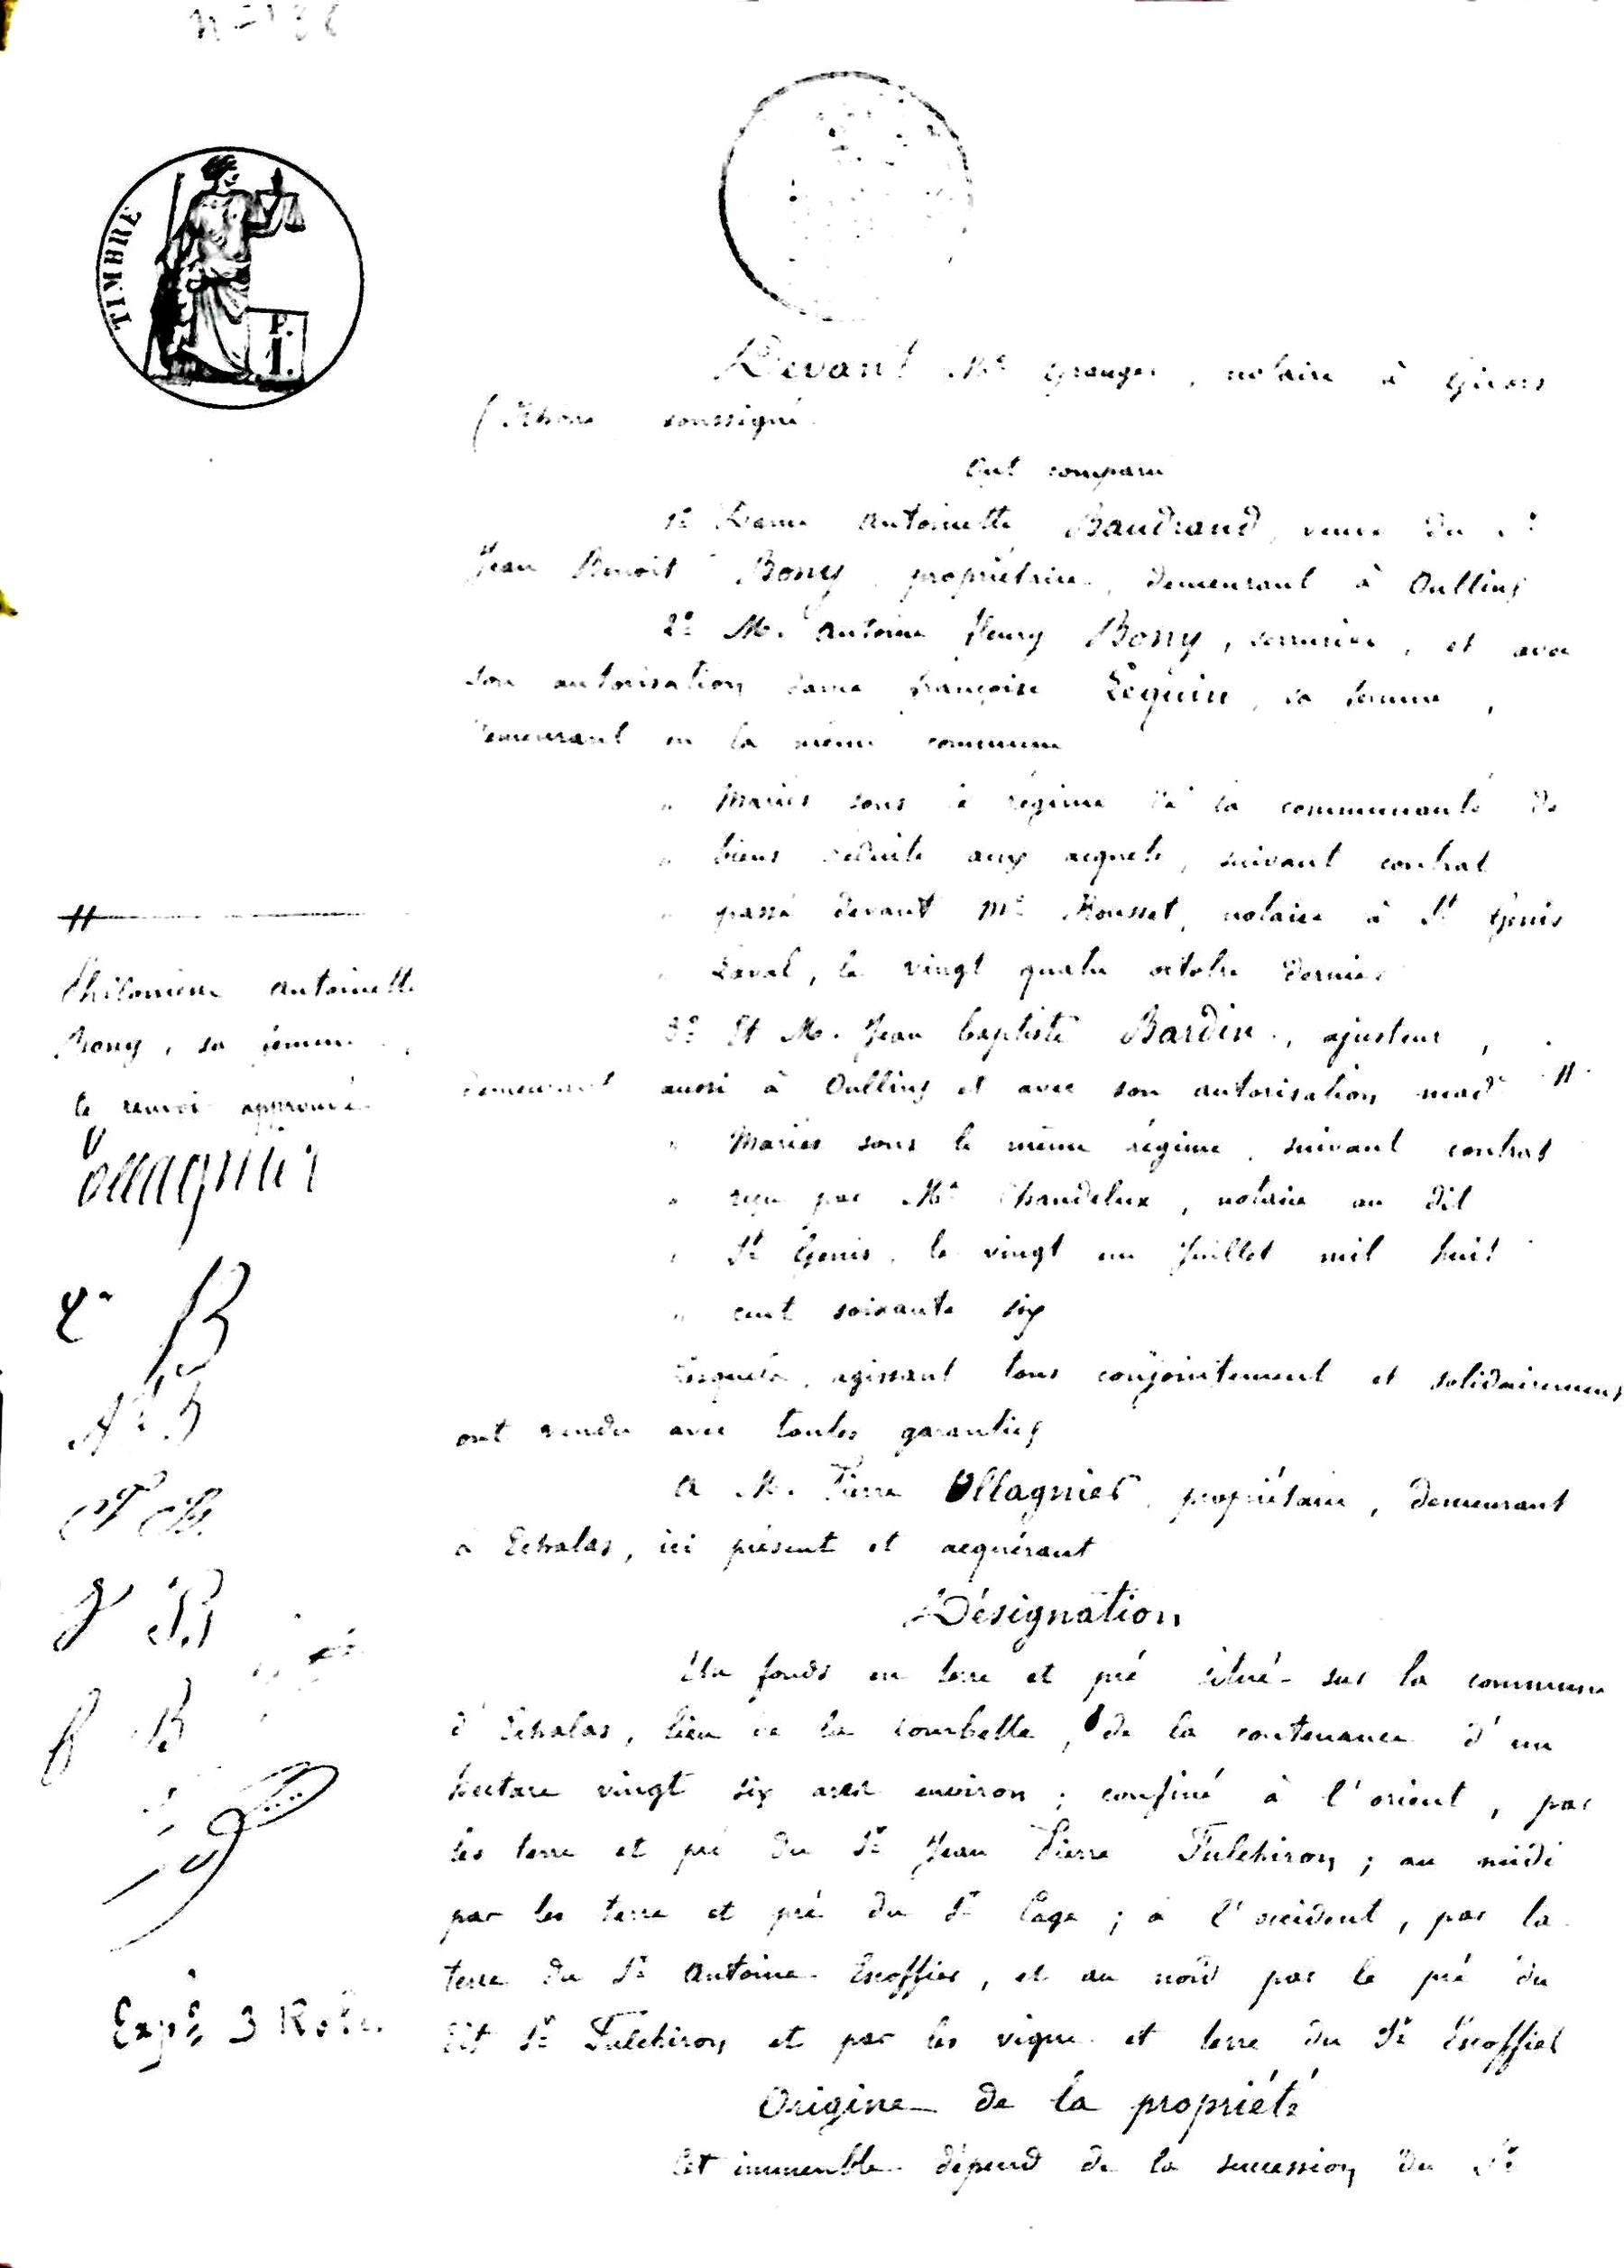 TIMBRE
P.
1.
Devant Me Granger, notaire à Givors
(Rhône soussigné
Ont comparu
1° Dame Antoinette Baudrand, veuve du Sr
Jean Benoit Bony propriétaire, demeurant à Oullins
2° M. Antoine Fleury Bony, serrurier, et avec
son autorisation dame françoise Léquin, sa femme,
demeurant en la même commune
" Mariés sous le régime de la communauté de
" biens réduite aux acquets, suivant contrat
" passé devant Me Rousset, notaire à St Genis
" Laval, le vingt quatre octobre dernier
3° Et M. Jean baptiste Bardin, ajusteur,
demeurant aussi à Oullins et avec son autorisation mad° #
" Mariés sous le même régime, suivant contrat
" reçu par Me Chandelux, notaire au dit
" St Genis, le vingt un Juillet mil huit
" cent soixante six
Lesquels, agissant tous conjointement et solidairement
ont vendu avec toutes garanties
A M. Pierre Ollagnier, propriétaire, demeurant
à Echalas, ici présent et acquérant
Désignation
Un fonds en terre et pré situé sur la commune
d'Echalas, lieu de la Combette, de la contenance d'un
hectare vingt six ares environ ; confiné à l'orient, par
les terre et pré du Sr Jean Pierre Fulchiron ; au midi
par les terre et pré du Sr Page ; à l'occident, par la
terre du Sr Antoine Escoffier, et au nord par le pré du
dit Sr Fulchiron et par les vigne et terre du Sr Escoffier
Origine de la propriété
Cet immeuble dépend de la succession du Sr
#
Philomène Antoinette
Bony, sa femme
le renvoi approuvé
Ollagnier
B
J B
Expé 3 Roles